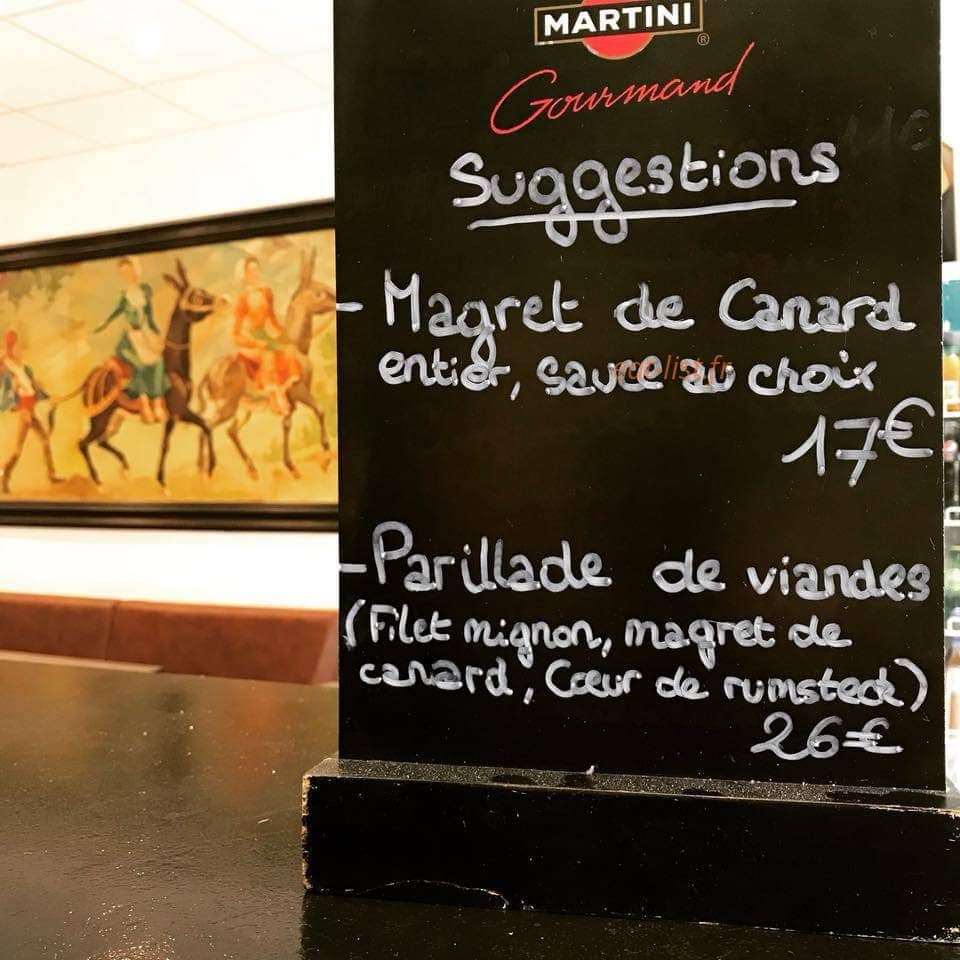 MARTINI
®
Gourmand
Suggestions
- Magret de Canard
entier, sauce au choix
eat-list.fr
17€
- Parillade de viandes
(Filet mignon, magret de
canard, Cœur de rumsteck)
26€